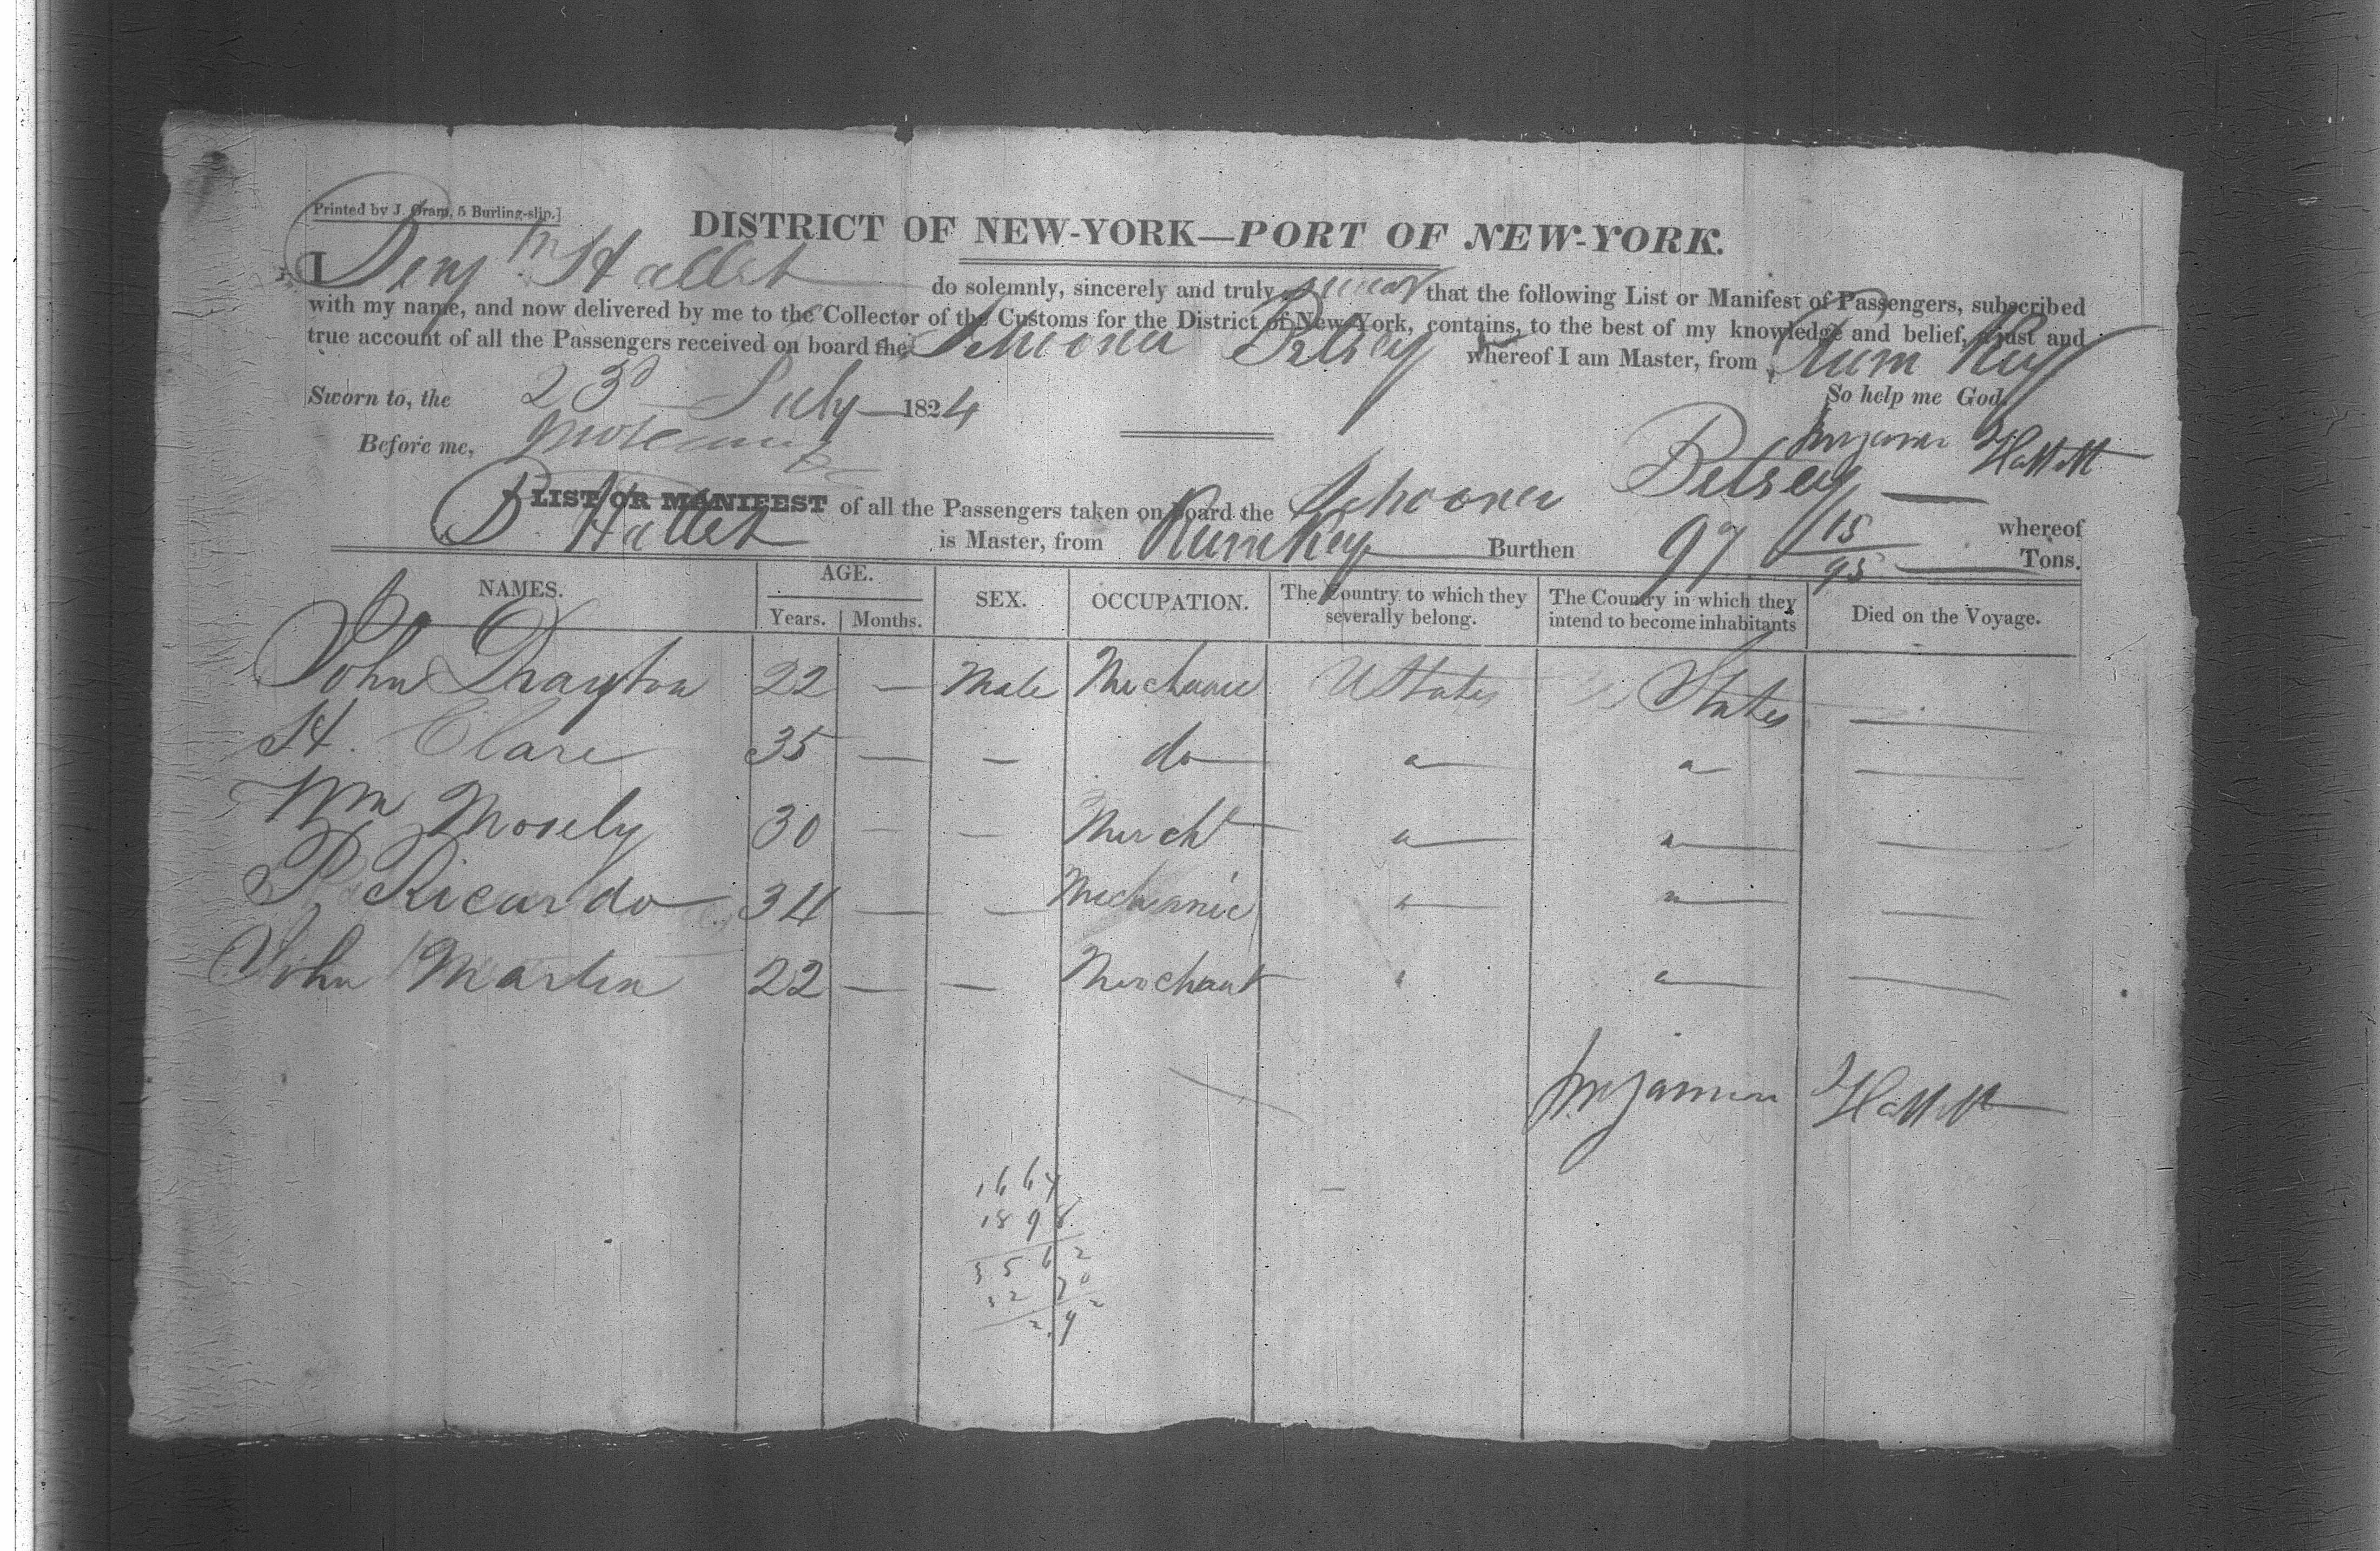 Printed by J. Oram, 5 Burling-slip.]
DISTRICT OF NEW-YORK—PORT OF NEW-YORK.
I Benjm Hallet do solemnly, sincerely and truly swear that the following List or Manifest of Passengers, subscribed
with my name, and now delivered by me to the Collector of the Customs for the District of New-York, contains, to the best of my knowledge and belief, a just and
true account of all the Passengers received on board the Schooner Betsey whereof I am Master, from Rum Key
Sworn to, the 23d July 1824 So help me God.
Before me, Benjamin Hallett
LIST OR MANIFEST of all the Passengers taken on board the Schooner Betsey whereof
B Hallet is Master, from Rum Key Burthen 97 15/95 Tons.
NAMES. AGE. SEX. OCCUPATION. The Country to which they severally belong. The Country in which they intend to become inhabitants Died on the Voyage.
Years. Months.
John Drayton 22 — Male Mechanic UStates States —
H. Clare 35 — — do " " —
Wm Mosely 30 — — Mercht " " —
P Ricardo 34 — — Mechannic " " —
John Martin 22 — — Merchant " " —
Benjamin Hallett
1664
1898
3562
3270
292